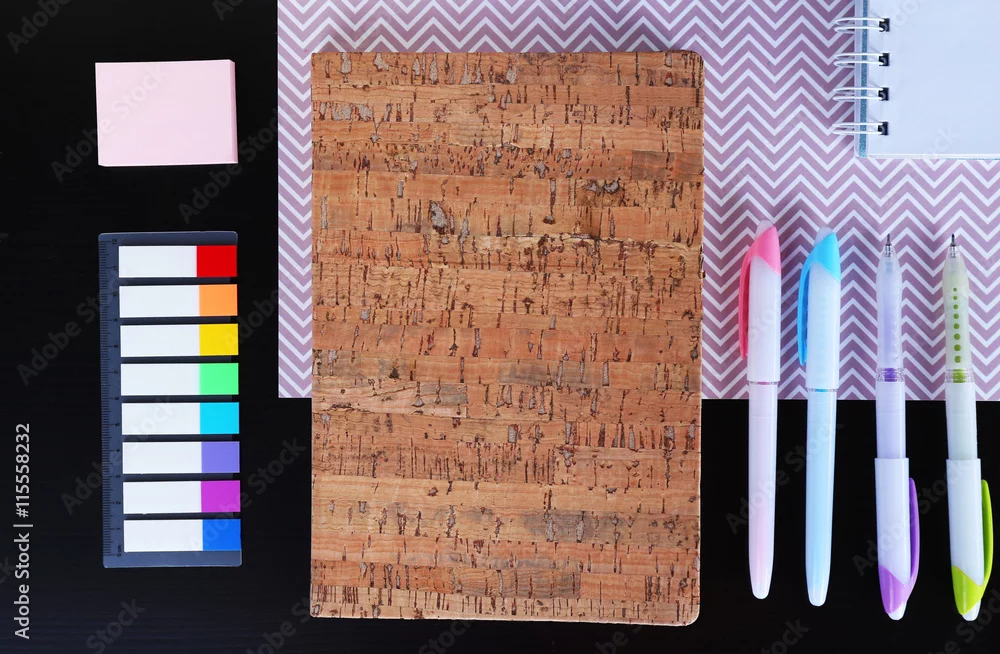 Adobe Stock | #115558232